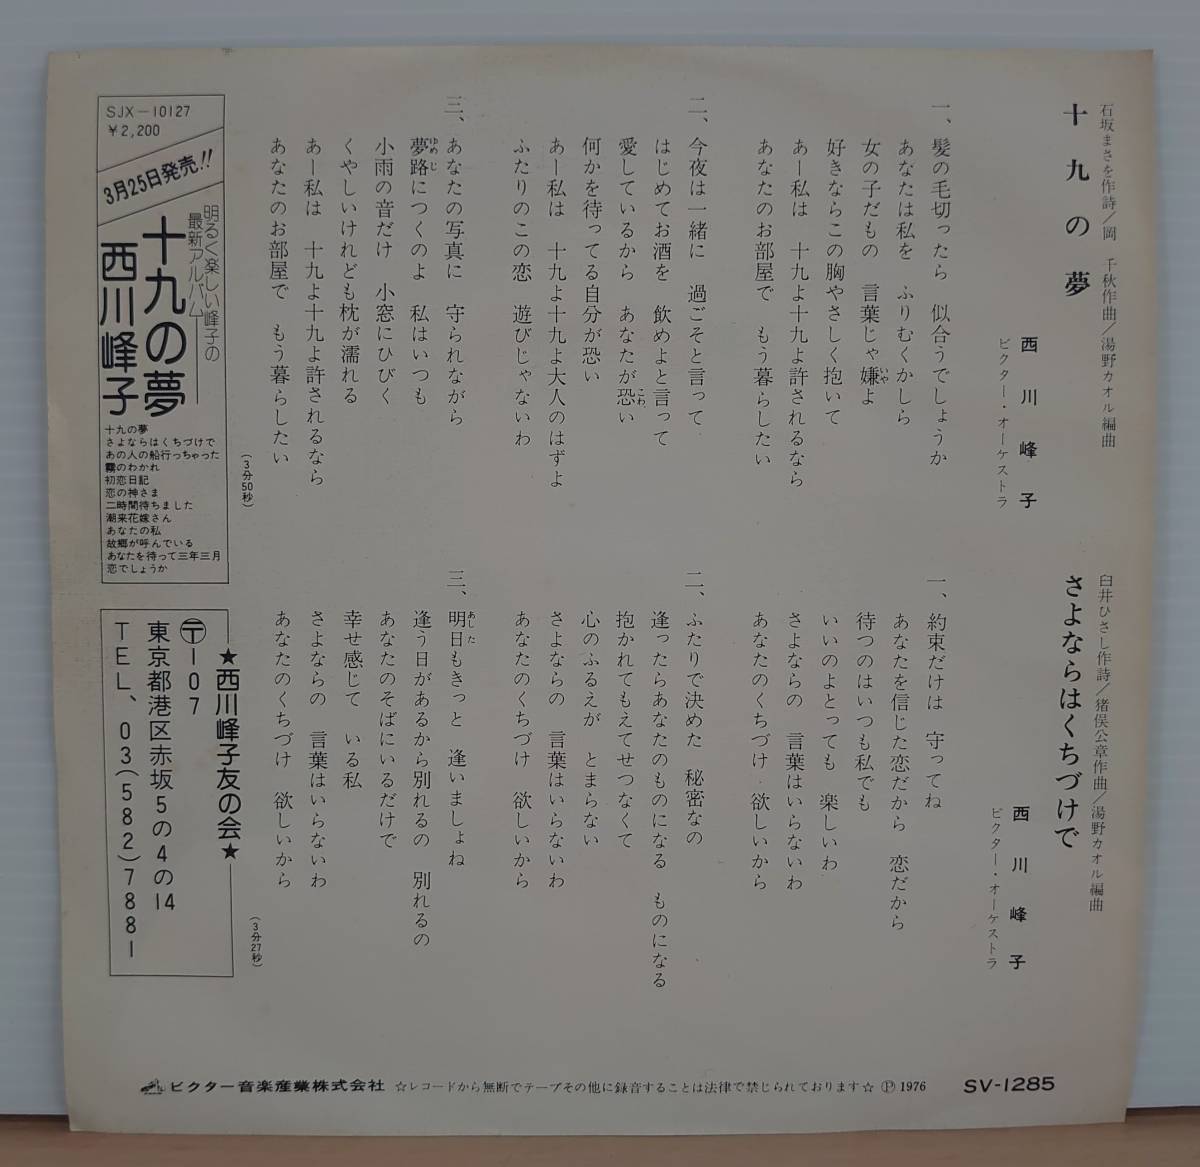 石坂まさを作詩／岡　千秋作曲／湯野カオル編曲
十九の夢
西川峰子
ビクター・オーケストラ
一、髪の毛切ったら　似合うでしょうか
あなたは私を　ふりむくかしら
女の子だもの　言葉じゃ嫌よ
いや
好きならこの胸やさしく抱いて
あー私は　十九よ十九よ許されるなら
あなたのお部屋で　もう暮らしたい
二、今夜は一緒に　過ごそと言って
はじめてお酒を　飲めよと言って
愛しているから　あなたが恐い
こわ
何かを待ってる自分が恐い
あー私は　十九よ十九よ大人のはずよ
ふたりのこの恋　遊びじゃないわ
三、あなたの写真に　守られながら
夢路につくのよ　私はいつも
ゆめじ
小雨の音だけ　小窓にひびく
くやしいけれども枕が濡れる
あー私は　十九よ十九よ許されるなら
あなたのお部屋で　もう暮らしたい
（3分50秒）
臼井ひさし作詩／猪俣公章作曲／湯野カオル編曲
さよならはくちづけで
西川峰子
ビクター・オーケストラ
一、約束だけは　守ってね
あなたを信じた恋だから　恋だから
待つのはいつも私でも
いいのよとっても　楽しいわ
さよならの　言葉はいらないわ
あなたのくちづけ　欲しいから
二、ふたりで決めた　秘密なの
逢ったらあなたのものになる　ものになる
抱かれてもえてせつなくて
心のふるえが　とまらない
さよならの　言葉はいらないわ
あなたのくちづけ　欲しいから
三、明日もきっと　逢いましょね
あした
逢う日があるから別れるの　別れるの
あなたのそばにいるだけで
幸せ感じて　いる私
さよならの　言葉はいらないわ
あなたのくちづけ　欲しいから
（3分27秒）
SJX－10127
￥2,200
3月25日発売!!
明るく楽しい峰子の
最新アルバム
十九の夢
西川峰子
十九の夢
さよならはくちづけで
あの人の船行っちゃった
霧のわかれ
初恋日記
恋の神さま
二時間待ちました
潮来花嫁さん
あなたの私
故郷が呼んでいる
あなたを待って三年三月
恋でしょうか
★西川峰子友の会★
〒107
東京都港区赤坂5の4の14
TEL、03(582)7881
ビクター音楽産業株式会社　☆レコードから無断でテープその他に録音することは法律で禁じられております☆　Ⓟ1976　SV-1285